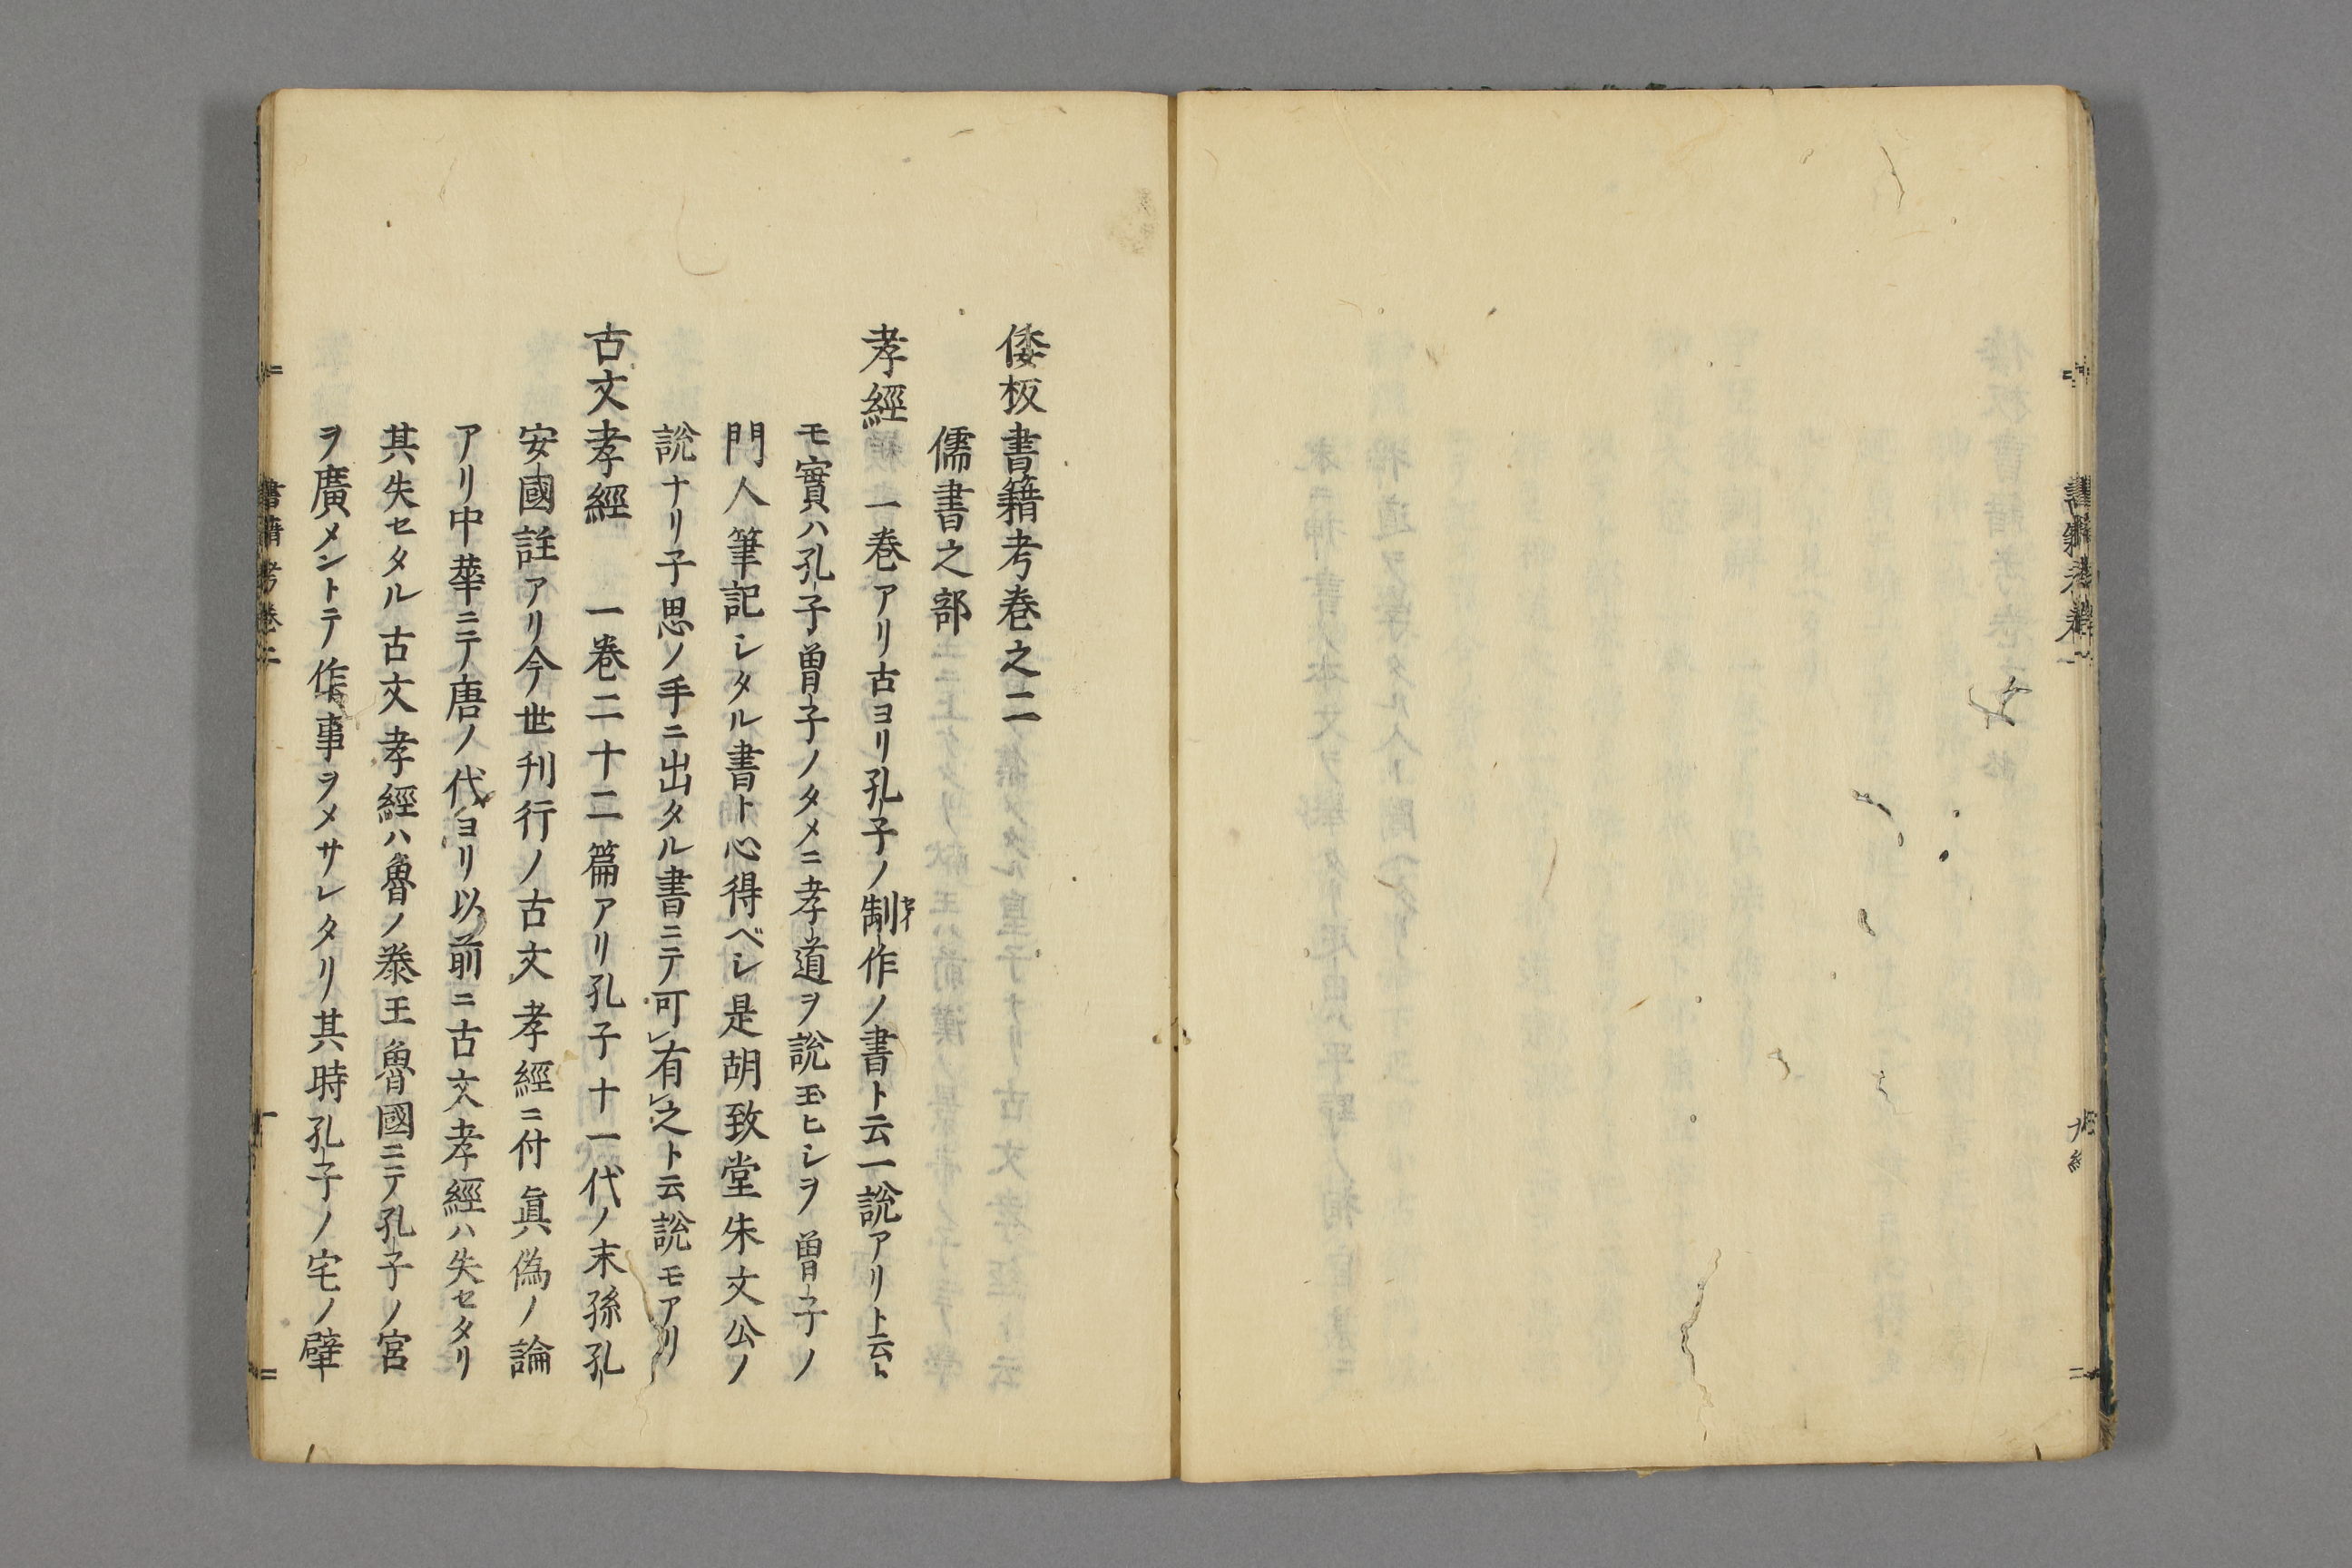 倭板書籍考卷之二
儒書之部
孝經　一卷アリ古ヨリ孔子ノ制作ノ書ト云一說アリト云ヘ
モ實ハ孔子曽子ノタメニ孝道ヲ說玉ヒシヲ曽子ノ
門人筆記シタル書ト心得ベシ是胡致堂朱文公ノ
說ナリ子思ノ手ニ出タル書ニテ可レ有レ之ト云說モアリ
古文孝經　一卷二十二篇アリ孔子十一代ノ末孫孔
安國註アリ今世刊行ノ古文孝經ニ付眞偽ノ論
アリ中華ニテ唐ノ代ヨリ以前ニ古文孝經ハ失セタリ
其失セタル古文孝經ハ魯ノ㳟王魯國ニテ孔子ノ宮
ヲ廣メントテ作事ヲメサレタリ其時孔子ノ宅ノ壁
書籍考卷二